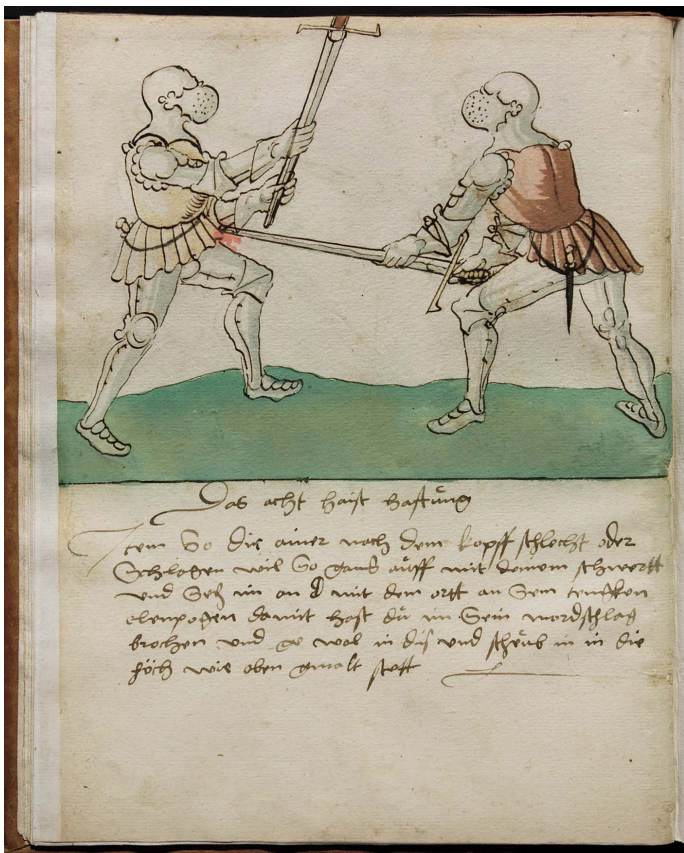 Das acht haist hafftung
Item So dir ainer nach dem kopff schlecht oder
Schlagen wil So gand auff mit deinem schwertt
und Setz im an mit dem ortt an Sein tencken
elenpogen damit hast du im Sein mordschlag
brochen und ge wol in dis und scheub in in die
höch wie oben gmalt stett